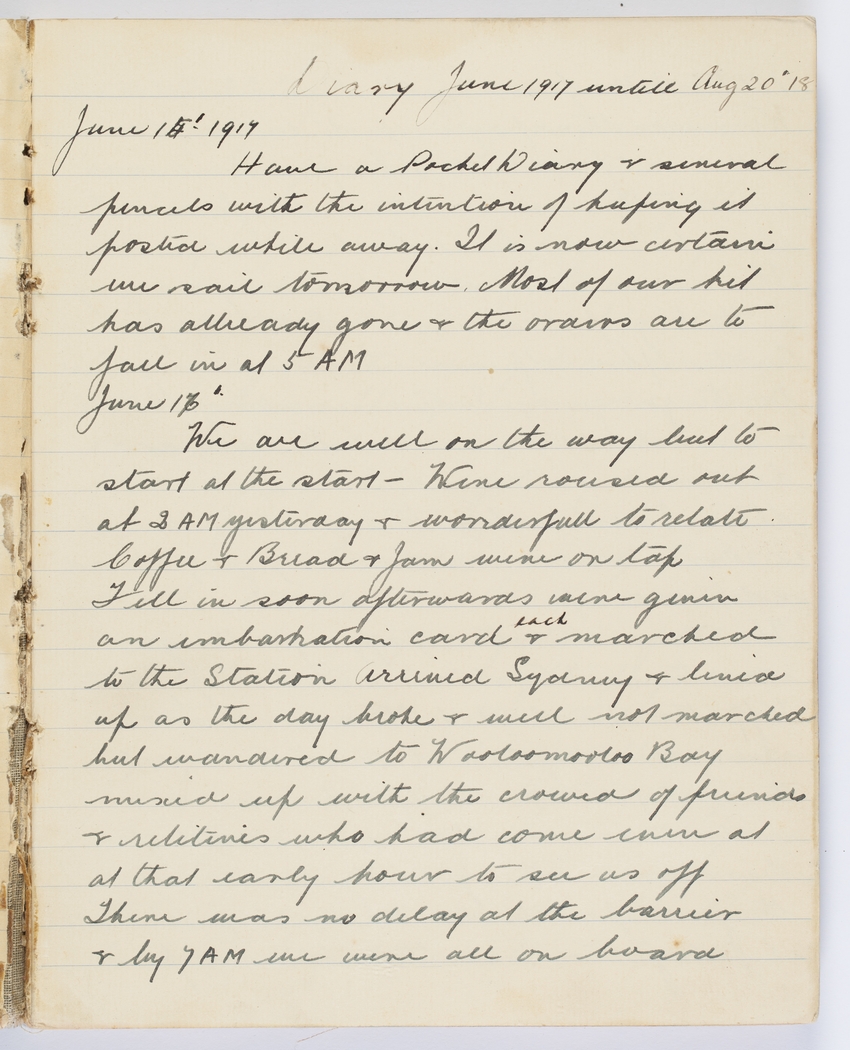 Diary June 1917 untill Aug 20' 18
June 15' 1917
Have a Pocket Diary & several
pencels with the intention of keeping it
posted while away. It is now certain
we sail tomsorrow. Most of our kit
has allready gone & the orders are to
fall in at 5 AM
June 17'
We are well on the way but to
start at the start - Were roused out
at 2 AM yesterday & wonderfull to relate.
Coffee & Bread & Jam were on tap
Fell in soon afterwards were given
an embarkation card each & marched
to the Station Arrived Sydney & lined
up as the day broke & well not marched
but wandered to Wooloomooloo Bay
mixed up with the crowed of friends
& relitives who had come even at
at that early hour to see us off
There was no delay at the barrier
& by 7 AM we were all on board